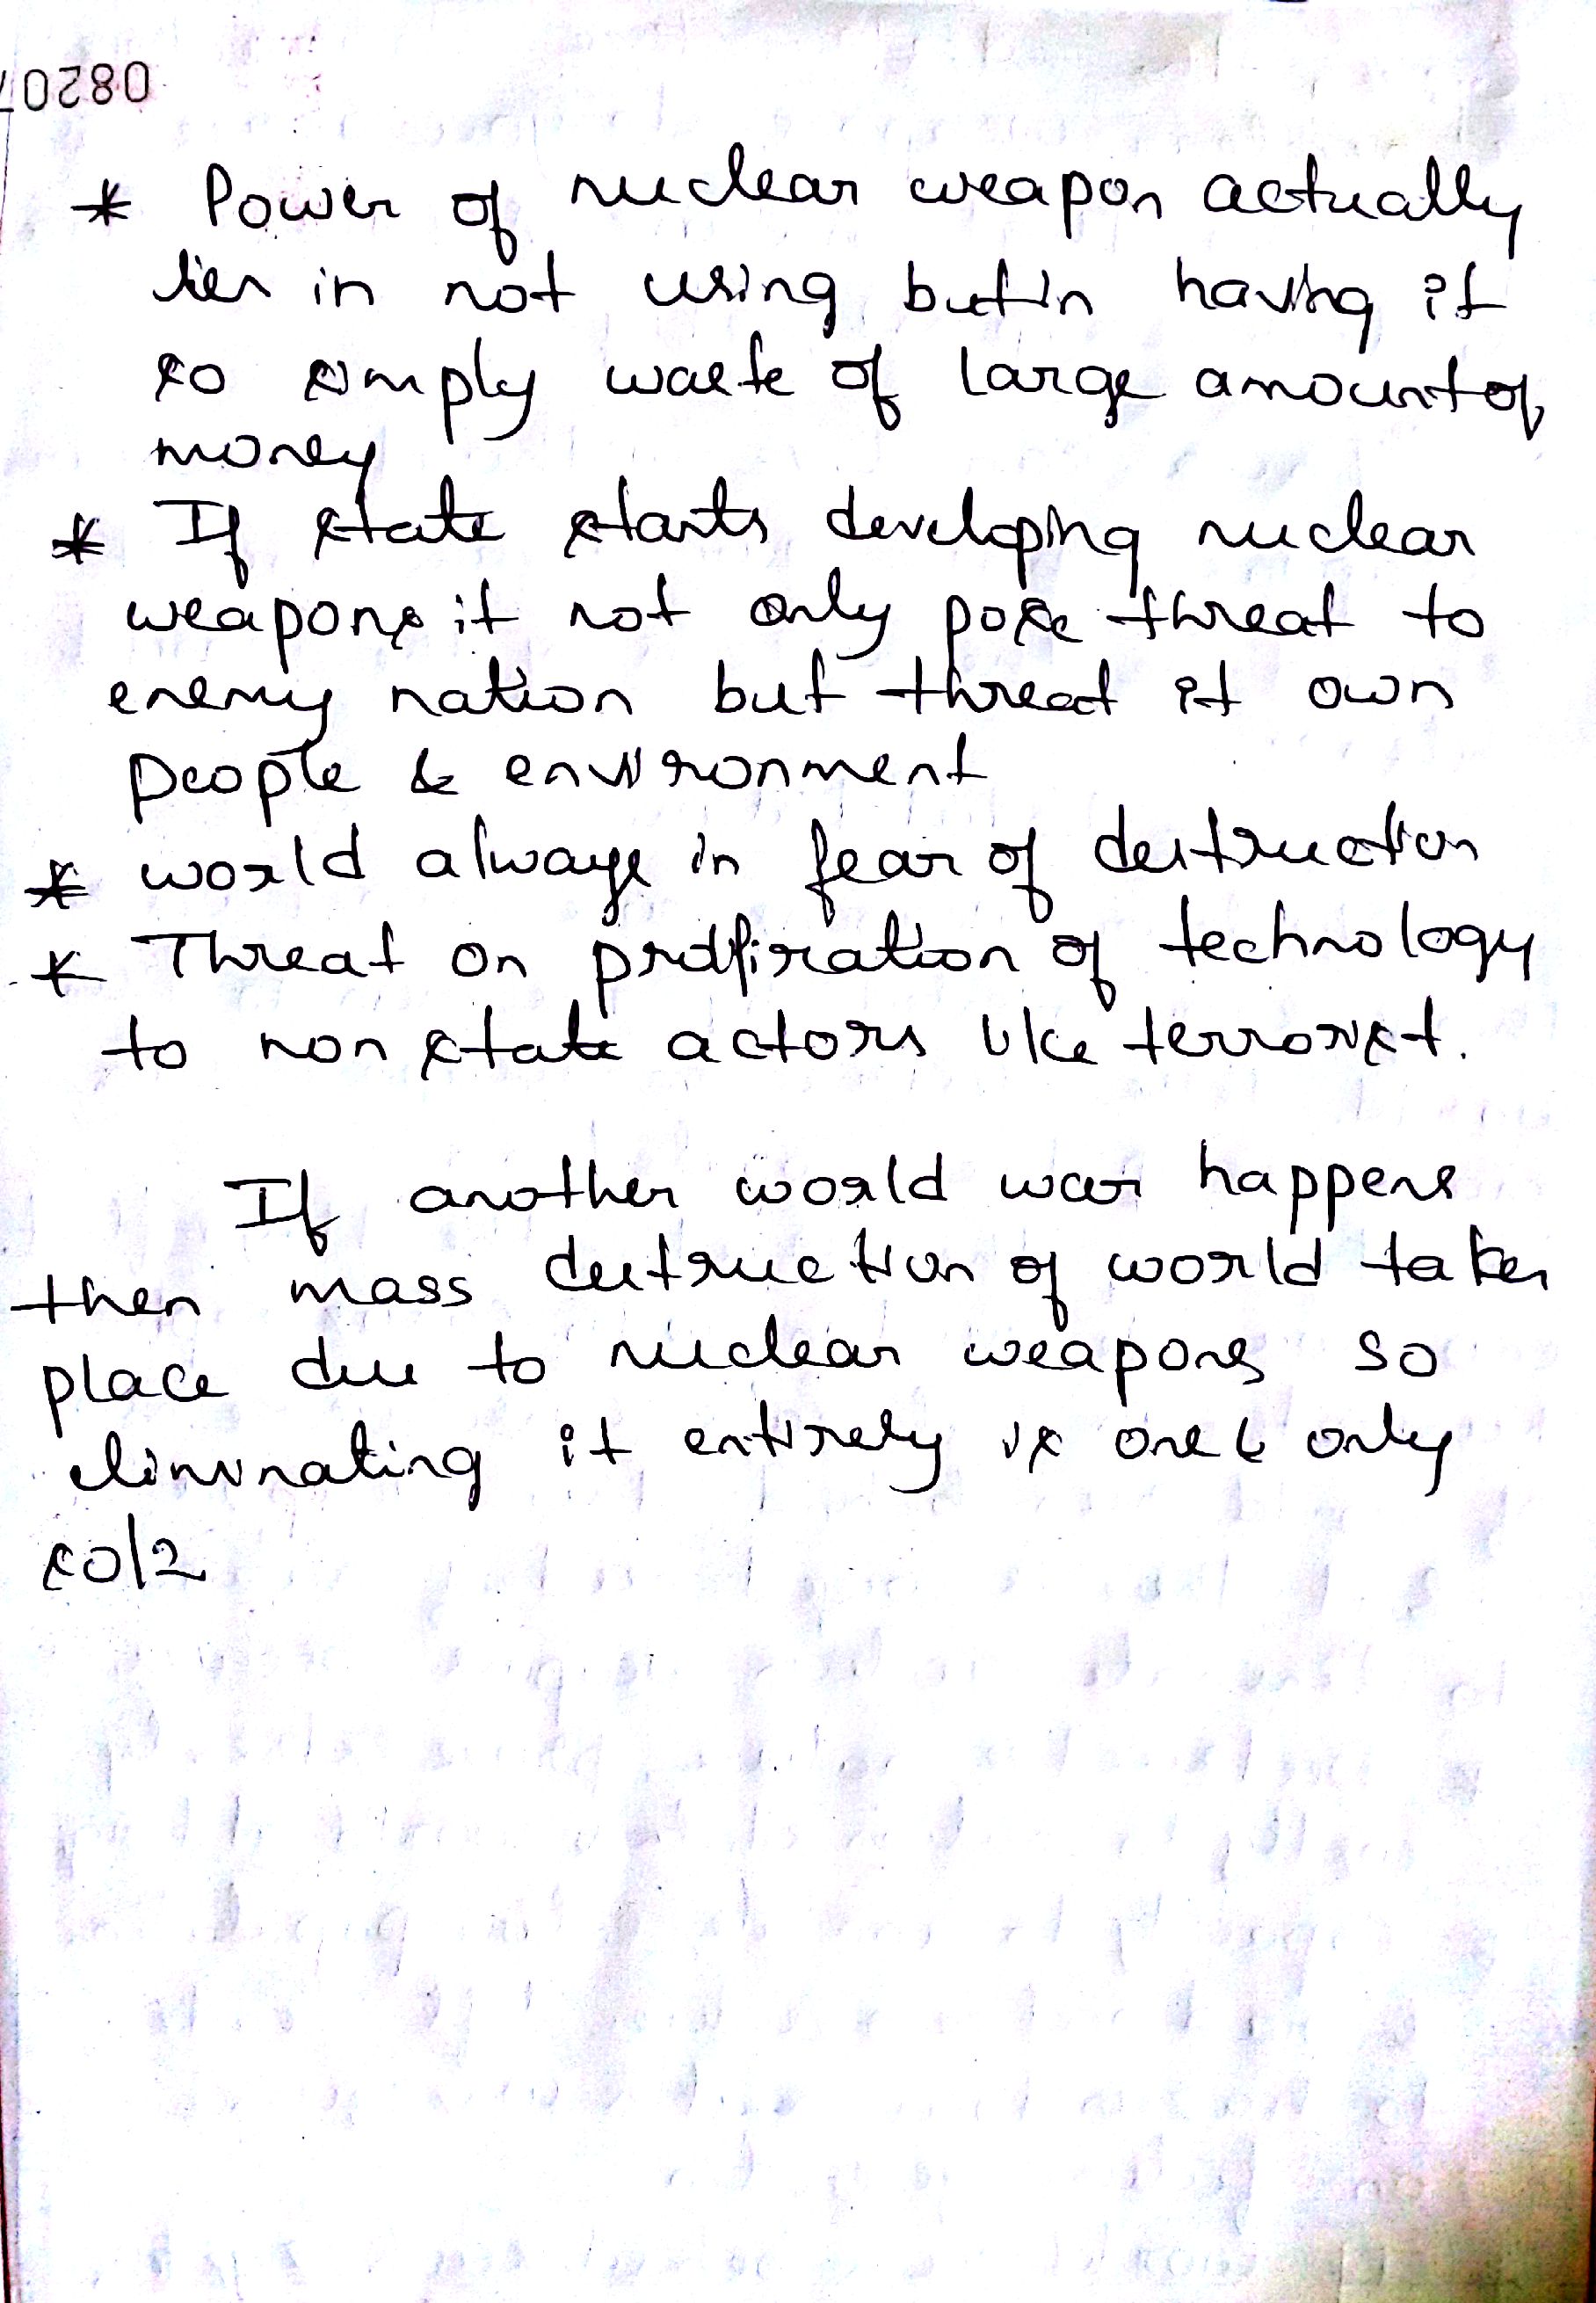 08207
* Power of nuclear weapon actually
lies in not using but in having it
so simply waste of large amount of
money
* If state starts developing nuclear
weapons it not only pose threat to
enemy nation but threat it own
people & environment
* world always in fear of destruction
* Threat on prolfiration of technology
to non state actors like terrorist.
If another world war happens
then mass destruction of world takes
place due to nuclear weapons so
eliminating it entirely is one & only
sol2